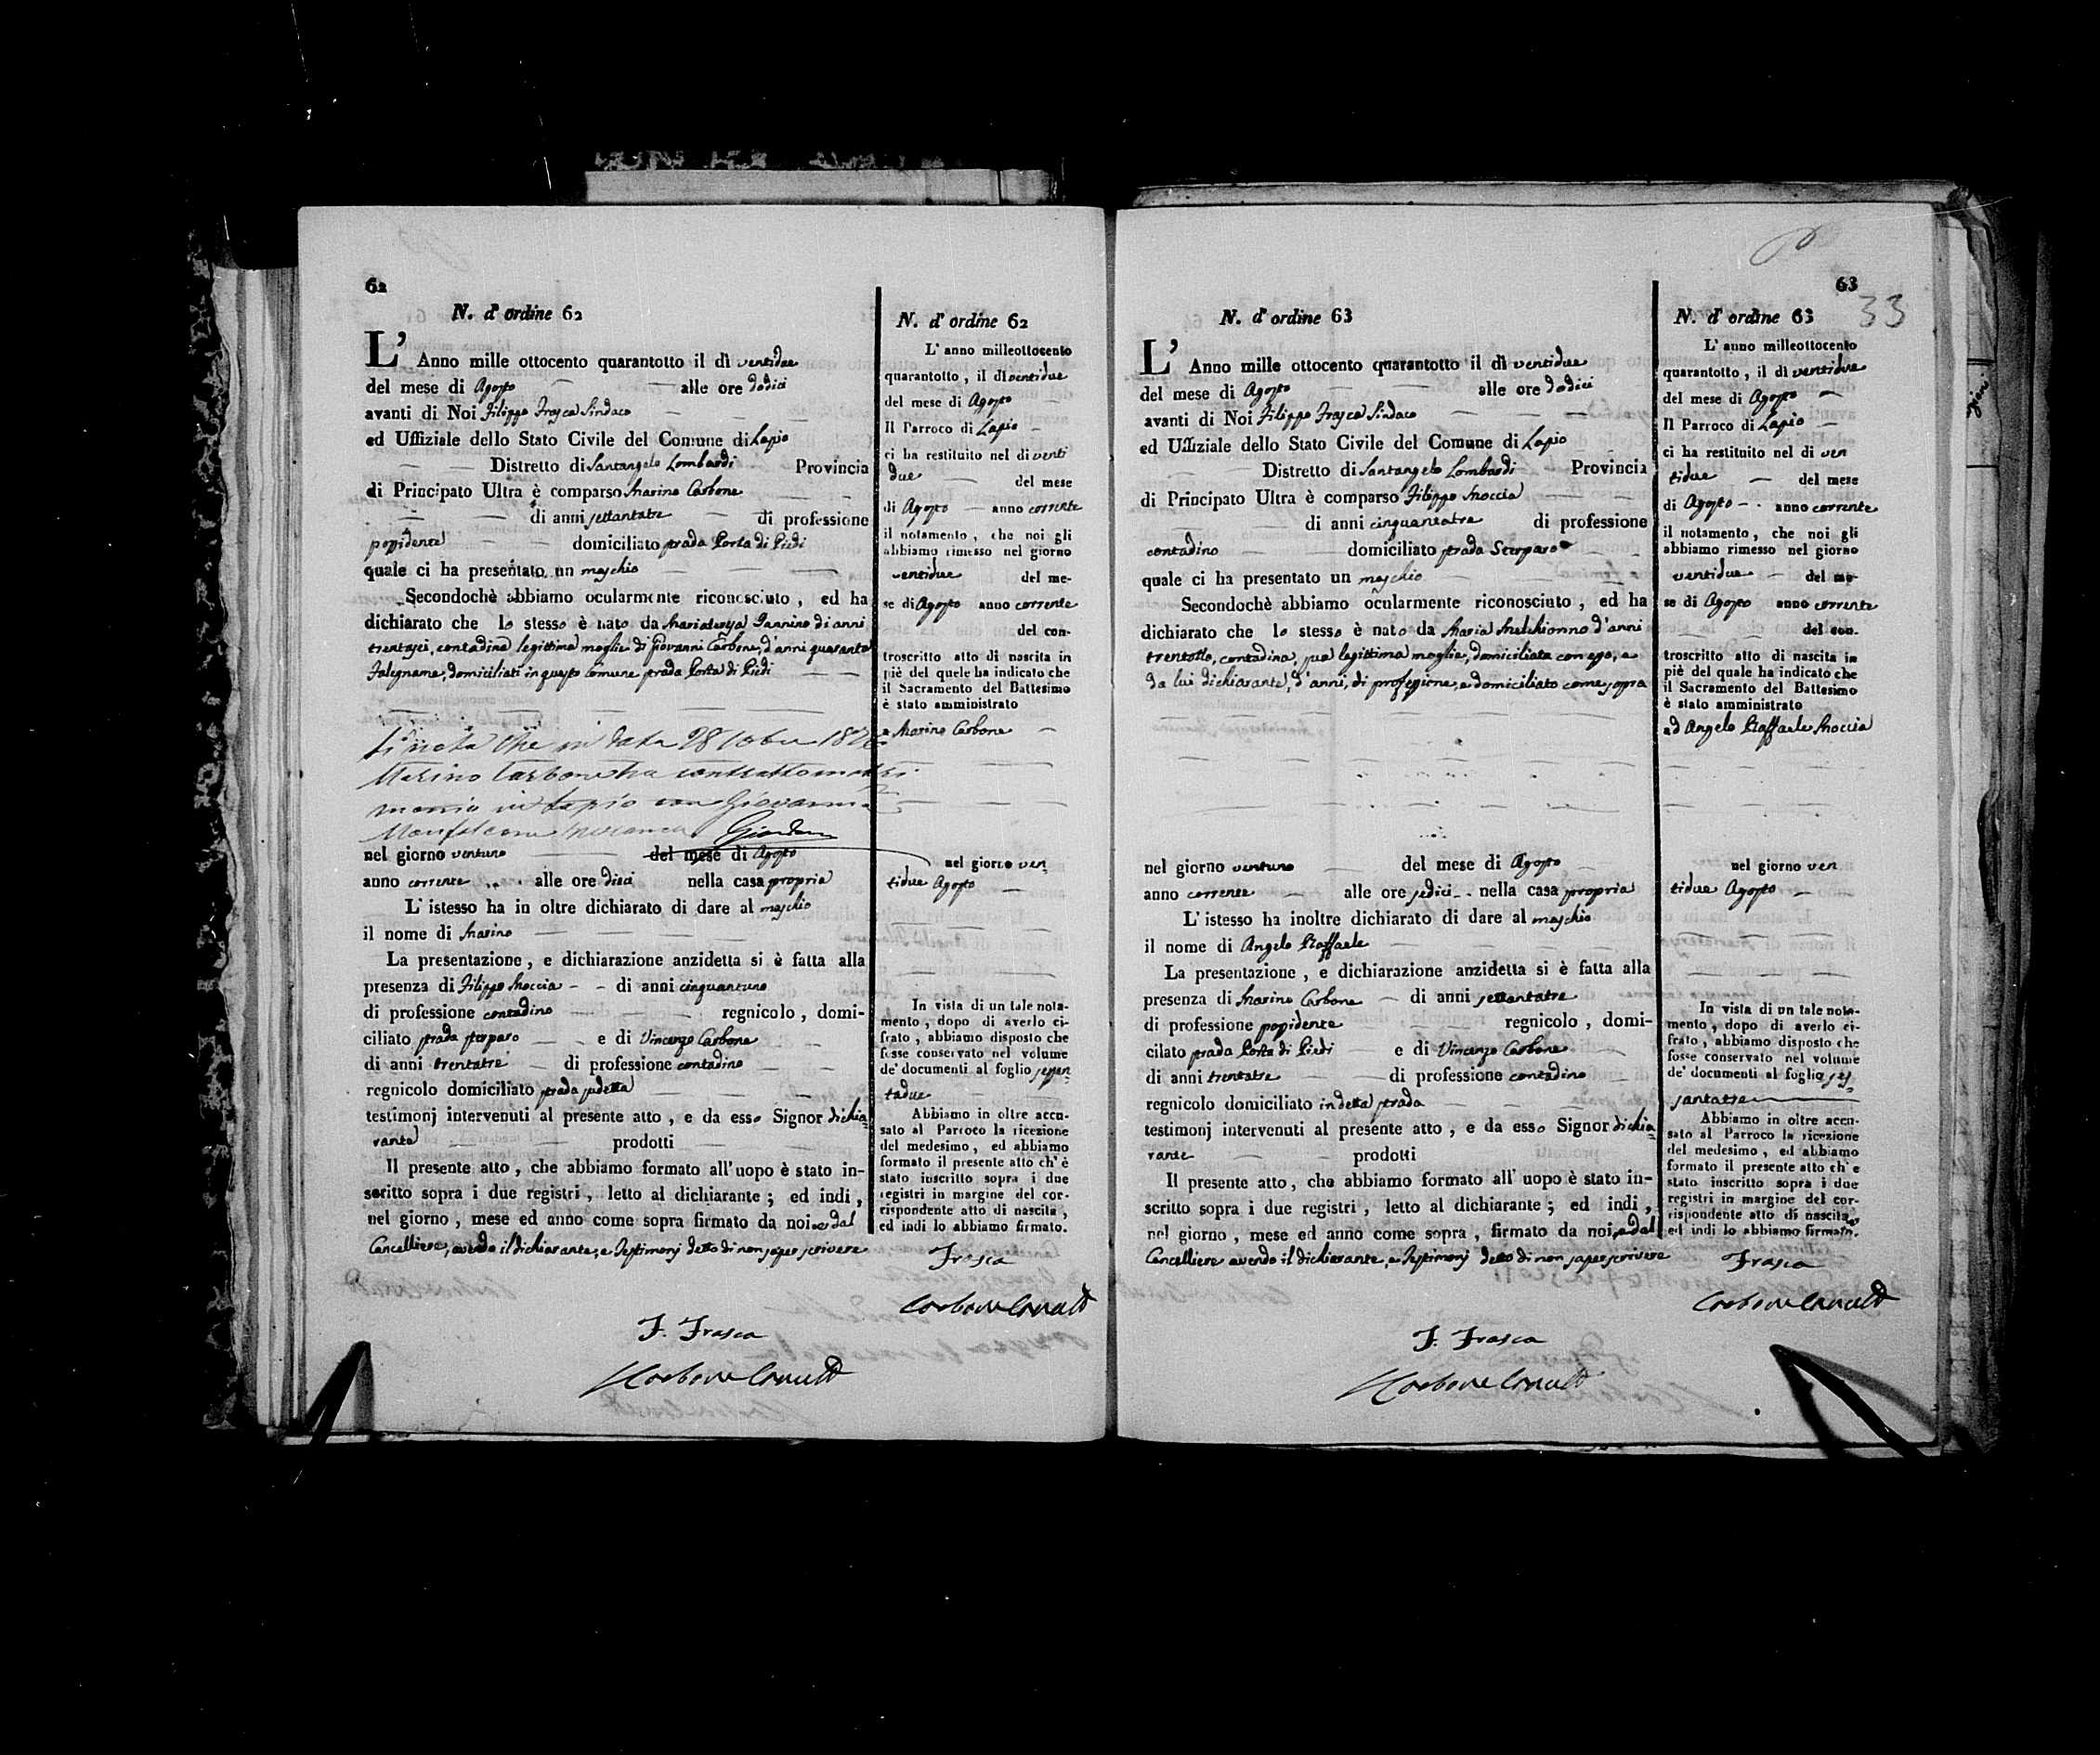 62
N. d'ordine 62
L'Anno mille ottocento quarantotto il dì ventidue
del mese di Agosto alle ore dodici
avanti di Noi Filippo Frasca Sindaco
ed Uffiziale dello Stato Civile del Comune di Lapio
Distretto di Santangelo Lombardi Provincia
di Principato Ultra è comparso Marino Carbone
di anni settantatre di professione
possidente domiciliato strada Porta di Piedi
quale ci ha presentato un maschio
Secondochè abbiamo ocularmente riconosciuto, ed ha
dichiarato che lo stesso è nato da Mariateresa Iannino di anni
trentasei, contadina legittima moglie di Giovanni Carbone, d'anni quaranta
Falegname, domiciliati in questo Comune strada Porta di Piedi
Si nota che in data 28
Marino Carbone ha contratto matri
monio in Lapio con Giovanna
nel giorno ventuno del mese di Agosto
anno corrente alle ore dieci nella casa propria
L'istesso ha in oltre dichiarato di dare al maschio
il nome di Marino
La presentazione, e dichiarazione anzidetta si è fatta alla
presenza di Filippo Moccia di anni cinquantuno
di professione contadino regnicolo, domi-
ciliato strada sterparo e di Vincenzo Carbone
di anni trentatre di professione contadino
regnicolo domiciliato strada sudetta
testimonj intervenuti al presente atto, e da esso Signor dichia
rante prodotti
Il presente atto, che abbiamo formato all'uopo è stato in-
scritto sopra i due registri, letto al dichiarante; ed indi,
nel giorno, mese ed anno come sopra firmato da noi, e dal
Cancelliere, avendo il dichiarante, e Testimonj detto di non saper scrivere
F. Frasca
Carbone
N. d'ordine 62
L'anno milleottocento
quarantotto, il dì ventidue
del mese di Agosto
Il Parroco di Lapio
ci ha restituito nel dì venti
due del mese
di Agosto anno corrente
il notamento, che noi gli
abbiamo rimesso nel giorno
ventidue del me-
se di Agosto anno corrente
del con-
troscritto atto di nascita in
piè del quele ha indicato che
il Sacramento del Battesimo
è stato amministrato
a Marino Carbone
nel giorno ven
tidue Agosto
In vista di un tale nota-
mento, dopo di averlo ci-
frato, abbiamo disposto che
fosse conservato nel volume
de' documenti al foglio sessan
tadue
Abbiamo in oltre accu-
sato al Parroco la ricezione
del medesimo, ed abbiamo
formato il presente atto ch'è
stato inscritto sopra i due
registri in margine del cor-
rispondente atto di nascita,
ed indi lo abbiamo firmato.
Frasca
Carbone
63
33
N. d'ordine 63
L'Anno mille ottocento quarantotto il dì ventidue
del mese di Agosto alle ore dodici
avanti di Noi Filippo Frasca Sindaco
ed Uffiziale dello Stato Civile del Comune di Lapio
Distretto di Santangelo Lombardi Provincia
di Principato Ultra è comparso Filippo Moccia
di anni cinquantatre di professione
contadino domiciliato strada Sterparo
quale ci ha presentato un maschio
Secondochè abbiamo ocularmente riconosciuto, ed ha
dichiarato che lo stesso è nato da Maria Melchionno d'anni
trentotto, contadina, sua legittima moglie, domiciliata con esso, e
da lui dichiarante, d'anni, di professione, e domiciliato come sopra
nel giorno ventuno del mese di Agosto
anno corrente alle ore sedici nella casa propria
L'istesso ha inoltre dichiarato di dare al maschio
il nome di Angelo Raffaele
La presentazione, e dichiarazione anzidetta si è fatta alla
presenza di Marino Carbone di anni settantatre
di professione possidente regnicolo, domi-
cilato strada Porta di Piedi e di Vincenzo Carbone
di anni trentatre di professione contadino
regnicolo domiciliato in detta strada
testimonj intervenuti al presente atto, e da esso Signor dichia
rante prodotti
Il presente atto, che abbiamo formato all'uopo è stato in-
scritto sopra i due registri, letto al dichiarante; ed indi,
nel giorno, mese ed anno come sopra, firmato da noi, e dal
Cancelliere avendo il dichiarante, e Testimonj detto di non saper scrivere
F. Frasca
Carbone
N. d'ordine 63
L'anno milleottocento
quarantotto, il dì ventidue
del mese di Agosto
Il Parroco di Lapio
ci ha restituito nel dì ven
tidue del mese
di Agosto anno corrente
il notamento, che noi gli
abbiamo rimesso nel giorno
ventidue del me-
se di Agosto anno corrente
del con-
troscritto atto di nascita in
piè del quale ha indicato che
il Sacramento del Battesimo
è stato amministrato
ad Angelo Raffaele Moccia
nel giorno ven
tidue Agosto
In vista di un tale nota-
mento, dopo di averlo ci-
frato, abbiamo disposto che
fosse conservato nel volume
de' documenti al foglio ses
santatre
Abbiamo in oltre accu-
sato al Parroco la ricezione
del medesimo, ed abbiamo
formato il presente atto ch'è
stato inscritto sopra i due
registri in margine del cor-
rispondente atto di nascita,
ed indi lo abbiamo firmato.
Frasca
Carbone